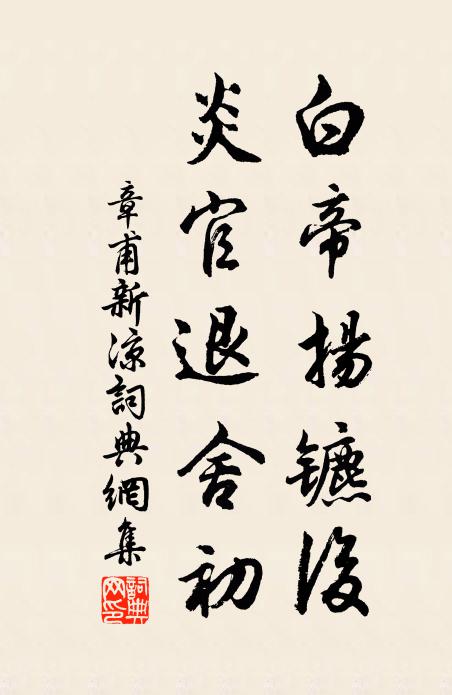 白帝揚鑣後
炎官退舍初
章甫新涼詞典網集
詞典
网印